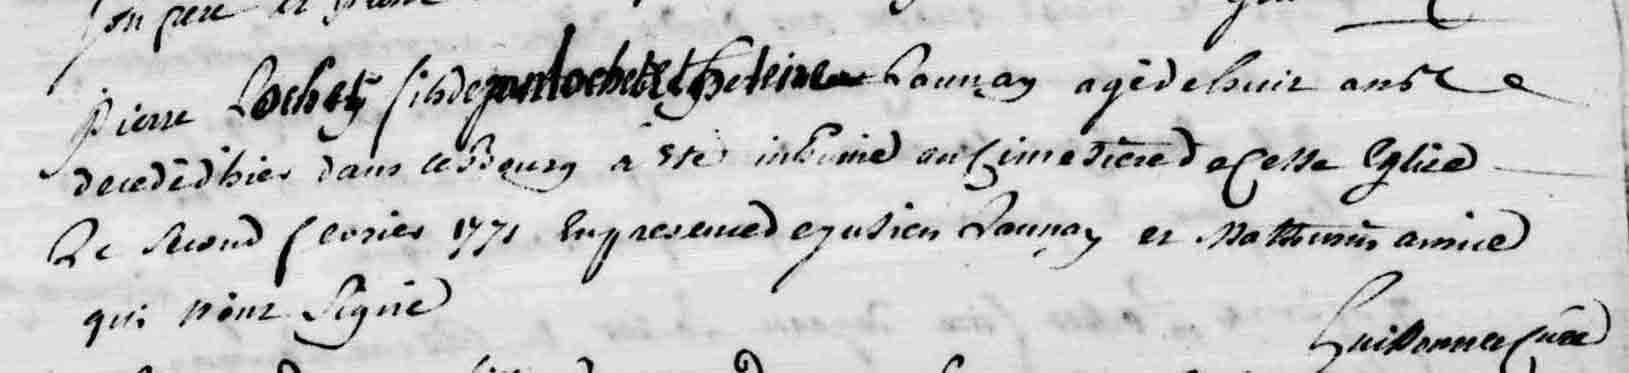 son pere et
pierre Lochet fils de jean lochet et heleine Launay agé de huit ans
decedé d'hier dans ce Bourg a Este inhumé au Cimetiere de Cette Eglise
Le second fevrier 1771 En presence de julien Launay et Mathurin
qui n'ont Signé
curé